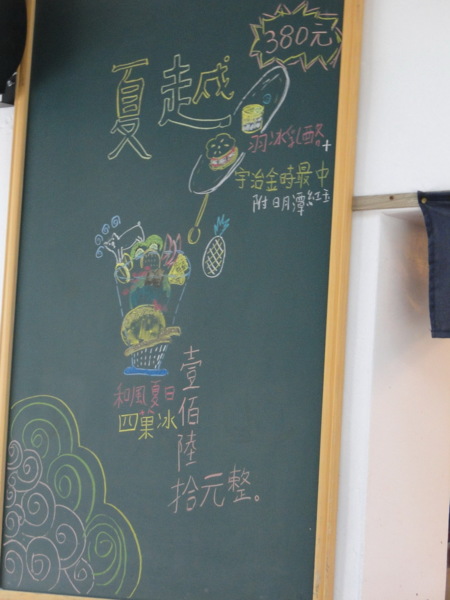 380元
夏越
羽冰乳酪+
宇治金時最中
附日月潭紅玉
和風夏日
四菓冰
壹佰陸
拾元整。